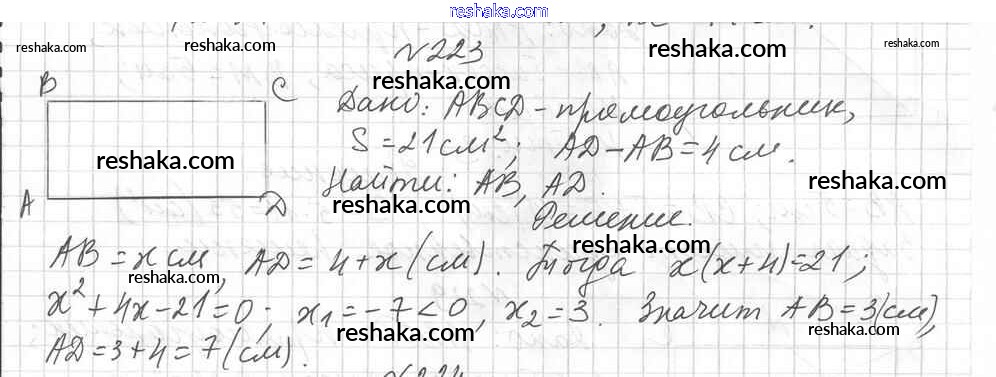 reshaka.com
№223
reshaka.com reshaka.com reshaka.com reshaka.com
B C
Дано: ABCD - прямоугольник,
S = 21 см²; AD - AB = 4 см.
reshaka.com reshaka.com
Найти: AB, AD.
A D
reshaka.com reshaka.com
Решение.
AB = x см, AD = 4 + x (см). Тогда x(x+4) = 21;
reshaka.com reshaka.com
x² + 4x - 21 = 0; x₁ = -7 < 0, x₂ = 3. Значит AB = 3 (см),
reshaka.com reshaka.com
AD = 3 + 4 = 7 (см).
reshaka.com reshaka.com
№224